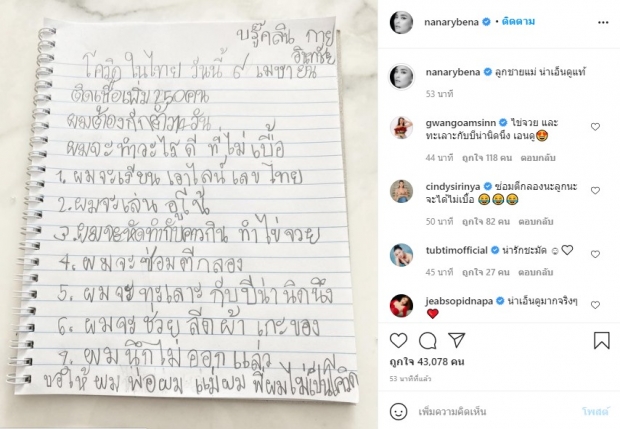 บรู๊คลิน กาย
อินทรัย
โควิด ในไทย วันนี้ ๙ เมษายน
ติดเชื้อเพิ่ม 250 คน
ผมต้องกักตัว 14 วัน
ผมจะทำอะไรดี ที่ไม่เบื่อ
1. ผมจะเรียน เอาไลน์ เลข ไทย
2. ผมจะเล่น อูโน้
3. ผมจะหัดทำกับคาวกิน ทำไข่จวย
4. ผมจะซ้อมตีกลอง
5. ผมจะทะเลาะ กับปีน่านิดนึง
6. ผมจะช่วย รีดผ้า เกะของ
7. ผมนึกไม่ออกแล้ว
ขอให้ ผม พ่อผม แม่ผม พี่ผมไม่เป็นโควิด
nanarybena • ติดตาม
nanarybena ลูกชายแม่ น่าเอ็นดูแท้
53 นาที
gwangoamsinn ไข่จวย และ
ทะเลาะกับปีน่านิดนึง เอนดู
44 นาที ถูกใจ 118 คน ตอบกลับ
cindysirinya ซ่อมตีกลองนะลูกนะ
จะได้ไม่เบื่อ
50 นาที ถูกใจ 82 คน ตอบกลับ
tubtimofficial น่ารักชะมัด
45 นาที ถูกใจ 27 คน ตอบกลับ
jeabsopidnapa น่าเอ็นดูมากจริงๆ
ถูกใจ 43,078 คน
53 นาทีที่แล้ว
เพิ่มความคิดเห็น โพสต์